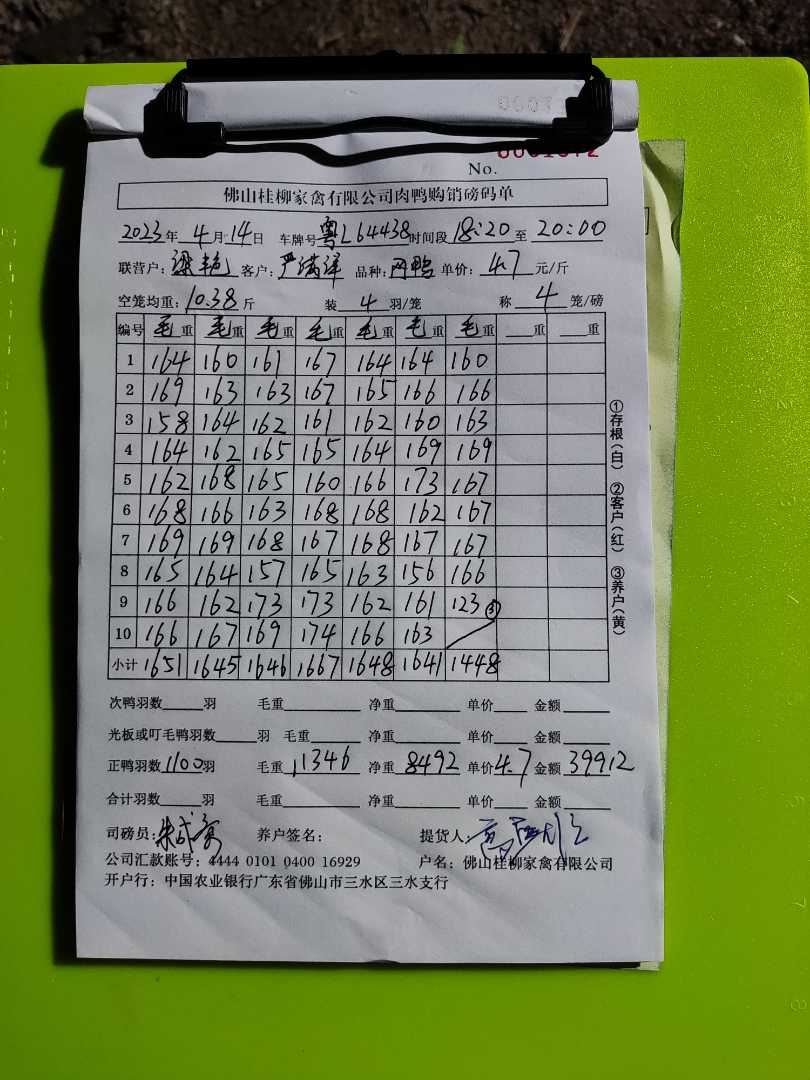 No.
佛山桂柳家禽有限公司肉鸭购销磅码单
2023年 4月14日 车牌号 粤L64438 时间段 18:20 至 20:00
联营户: 梁艳 客户: 严满洋 品种: 网鸭 单价: 4.7 元/斤
空笼均重: 10.38 斤 装 4 羽/笼 称 4 笼/磅
编号 毛重 毛重 毛重 毛重 毛重 毛重 毛重 重 重
1 164 160 161 167 164 164 160
2 169 163 163 167 165 166 166
3 158 164 162 161 162 160 163
4 164 162 165 165 164 169 169
5 162 168 165 160 166 173 167
6 168 166 163 168 168 162 167
7 169 169 168 167 168 167 167
8 165 164 157 165 163 156 166
9 166 162 173 173 162 161 123 ③
10 166 167 169 174 166 163
小计 1651 1645 1646 1667 1648 1641 1448
①存根(白) ②客户(红) ③养户(黄)
次鸭羽数 羽 毛重 净重 单价 金额
光板或叮毛鸭羽数 羽 毛重 净重 单价 金额
正鸭羽数 1100 羽 毛重 11346 净重 8492 单价 4.7 金额 39912
合计羽数 羽 毛重 净重 单价 金额
司磅员: 养户签名: 提货人:
公司汇款账号: 4444 0101 0400 16929 户名: 佛山桂柳家禽有限公司
开户行: 中国农业银行广东省佛山市三水区三水支行